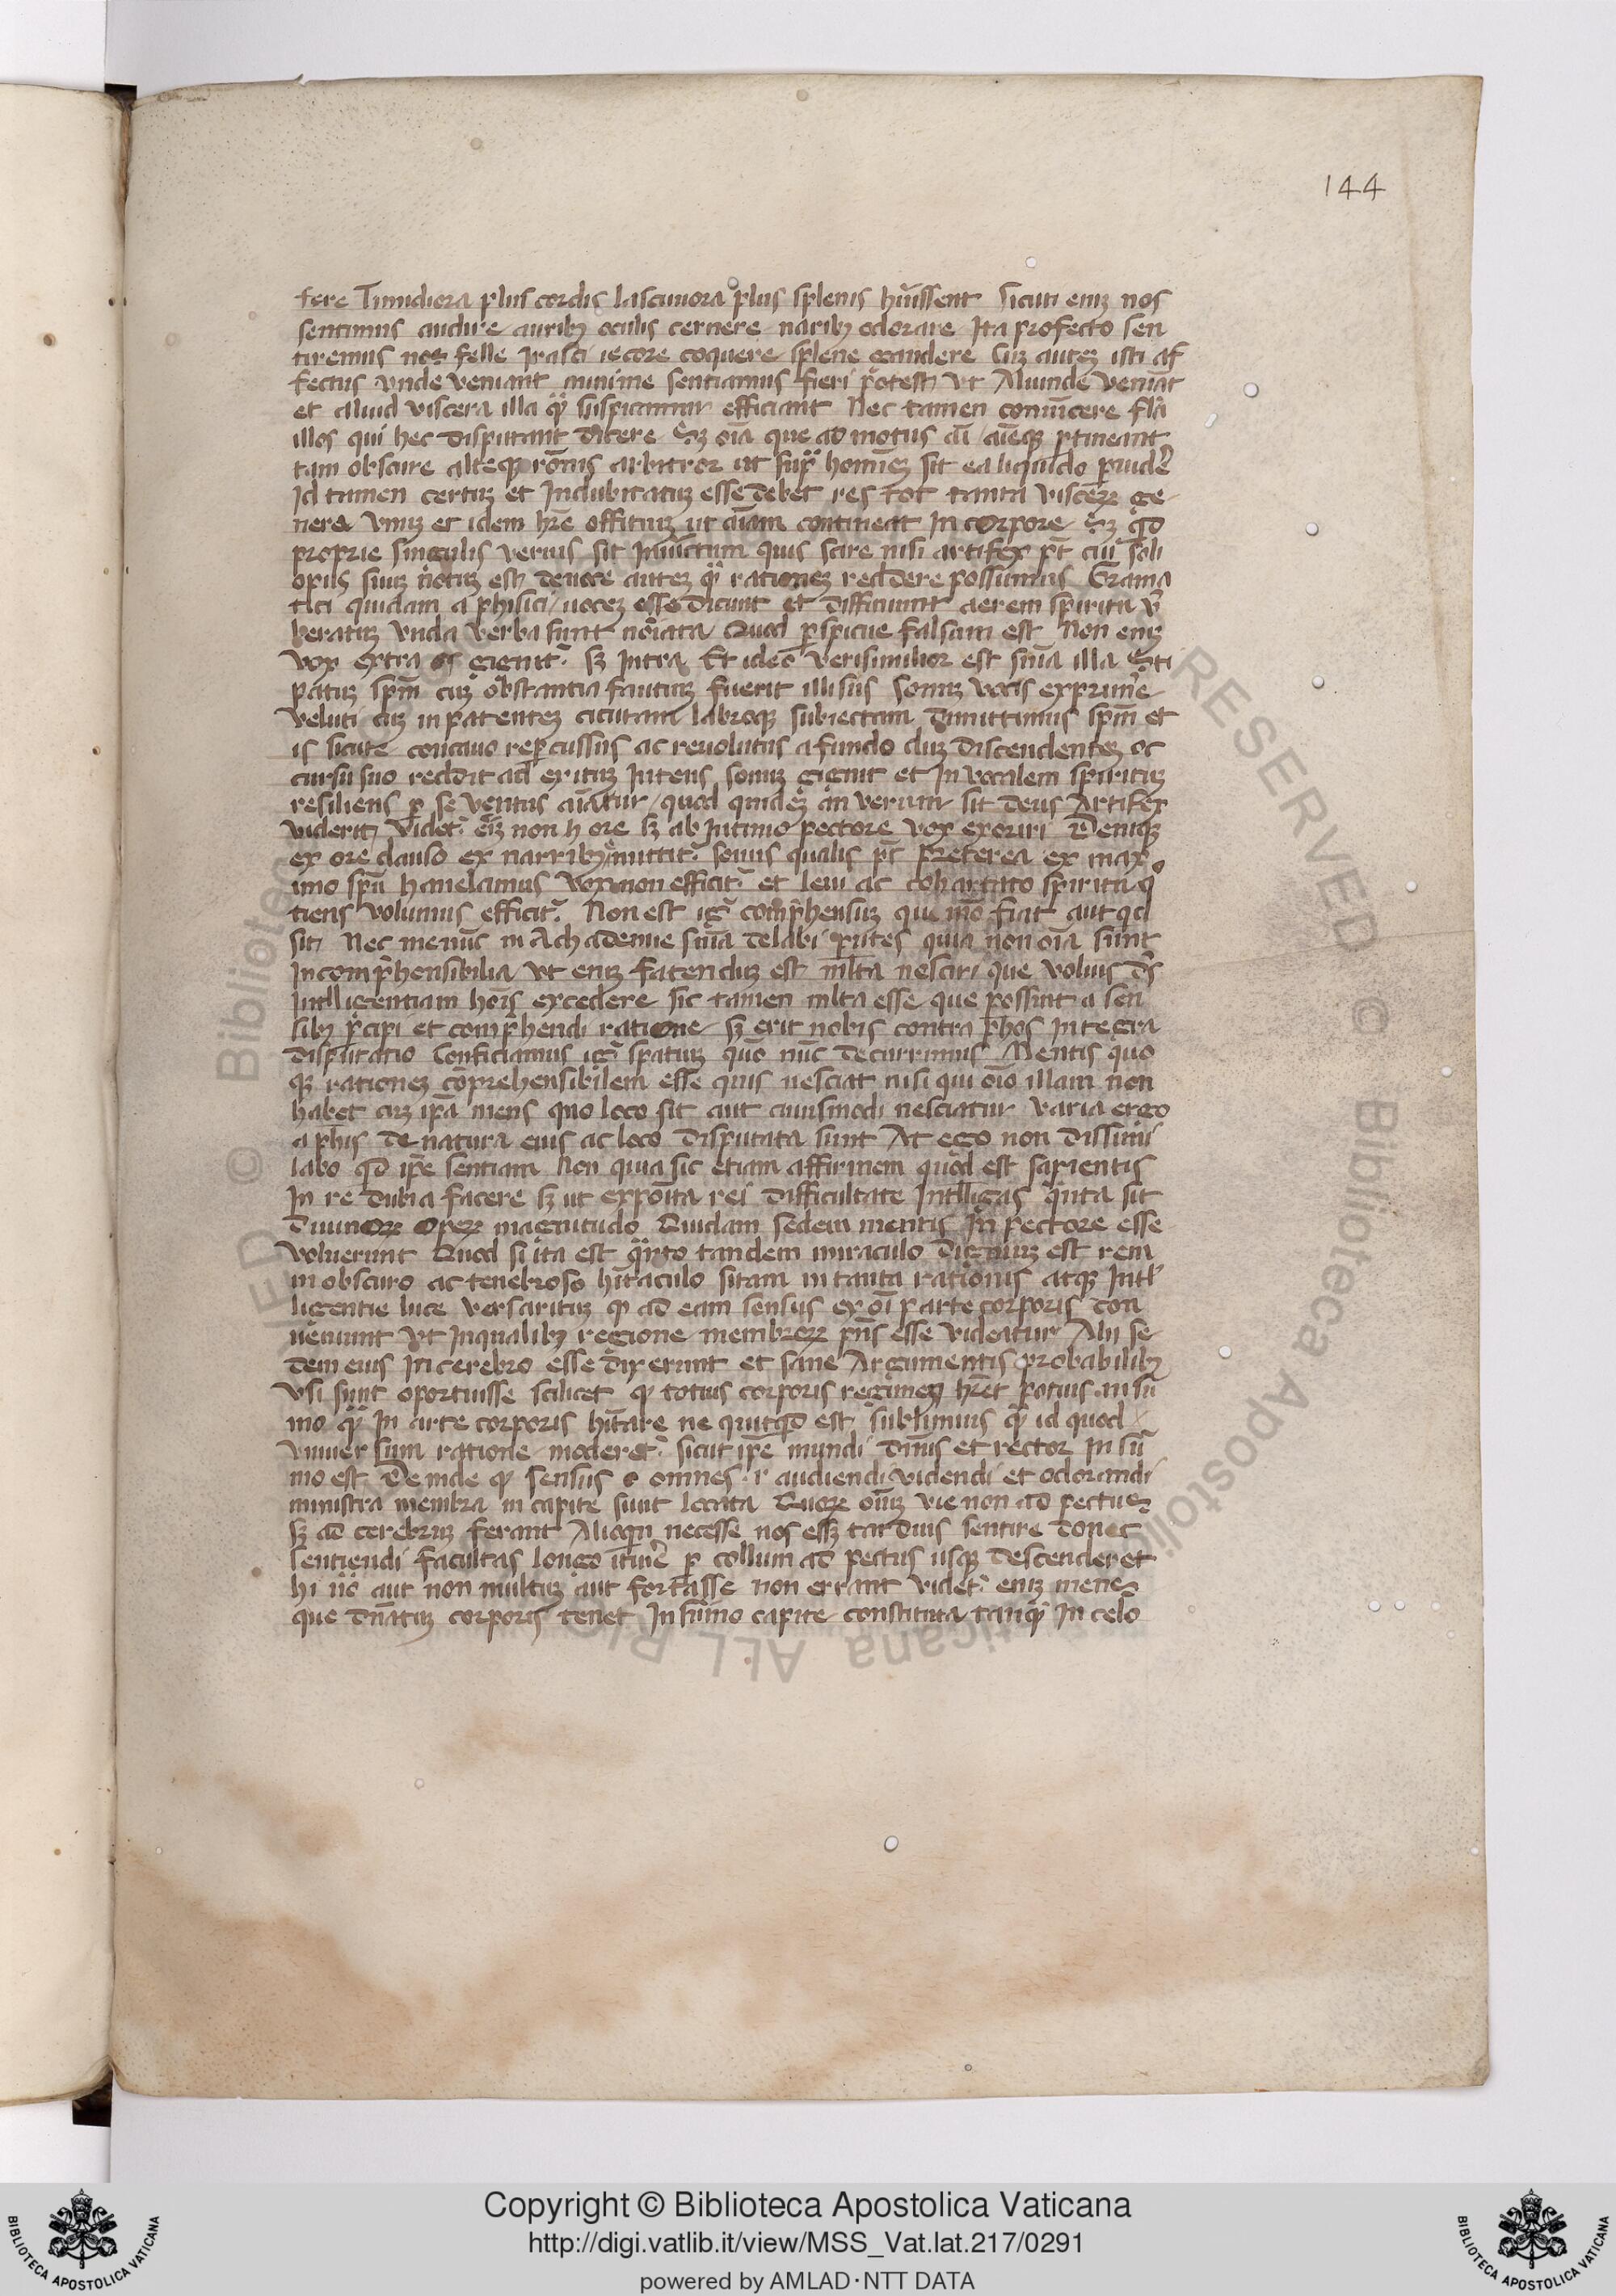 144
fere Timidiora plus cordis lasciuiora plus splenis hũissent Sicuti enīz nos
sentimus audire auribꝫ oculis cernere naribꝫ odorare Ita profecto sen
tiremus nos felle Irasci iecore coquere splene gaudere Cuꝫ auteꝫ isti af
fectus vnde veniant minime sentiamus fieri potest vt Aliunde veniāt
et aliud viscera illa qꝫ suspicamur efficiant Nec tamen conuīcere
illos qui hec disputant dicere Sꝫ oīa que ad motus aīe pertineant
tam obscure alteqꝫ rōnis arbitror ut supra homineꝫ sit ea liquido
Id tamen certuꝫ et Indubitatuꝫ esse debet res tot tanta visceꝝ ge
nera vnuꝫ et idem hr̄e offitiuꝫ ut aīam contineat In corpore Sꝫ qd
proprie singulis quis scire nisi artifex pt̄ cui soli
opus suuꝫ notuꝫ est de uoce auteꝫ qꝫ rationeꝫ reddere possumus Grama
tici quidam a phisici uoceꝫ esse dicunt et diffiniunt aerem spiritu ṽ
beratuꝫ vnda verba sunt noīata Quod perspicue falsum est Non enīꝫ
vox extra os gignit̃ sꝫ Intra Et ideo verisimilior est sn̄ia illa Sti
patuꝫ spm̄ cuꝫ obstantia fautiuꝫ fuerit illisus sonuꝫ vocis exprim̃e
veluti cuꝫ in patenteꝫ cicutam labroqꝫ subiectam dimittimus spm̄ et
is cicute concauo repercussus ac reuolutus a fundo duꝫ discendenteꝫ oc
cursu suo reddit ad exituꝫ Intens sonuꝫ gignit et In vocalem spirituꝫ
resiliens per se ventus aīatur quod quideꝫ an verum sit deus Artifex
viderit Videt̃ eīꝫ non h ore sꝫ ab Intimo pectore vox exoriri Deniqꝫ
ex ore clauso ex narribꝫ mittit̃ sonus qualis pt̄ Preterea ex maxi
imo spū hanelamus vox non efficit̃ et leui ac cohartato spiritu q
tiens volumus efficit̃ Non est ig̃ comp̃hensuꝫ quemō fiat aut qd
sit Nec me nūc in Achademie sn̄ia delabi putes quia non oīa sunt
Incomp̃hensibilia Vt enīꝫ fatenduꝫ est ml̃ta nesciri que voluit ds̄
Intlligentiam hoīs excedere sic tamen ml̃ta esse que possint a sen
sibꝫ percipi et comp̃hendi ratione sꝫ erit nobis contra ph̄os Integra
disputatio Conficiamus ig̃ spatiuꝫ quō nūc decurrimus Mentis quo
qꝫ rationeꝫ cōprehensibilem esse quis nesciat nisi qui oīo illam non
habet cuꝫ ipā mens quo loco sit aut cuiusmodi nesciatur Varia ergo
a phis de natura eius ac loco disputata sunt At ego non dissimi
labo qd ipē sentiam Non quia sic etiam affirmem quod est sapientis
In re dubia facere sꝫ ut expoīta rei difficultate Intlligas quāta sit
diuinoꝝ opeꝝ magnitudo Quidam sedem mentis In pectore esse
voluerunt Quod si ita est quāto tandem miraculo dignuꝫ est rem
in obscuro ac tenebroso hītaculo sitam in tanta rationis atqꝫ Intl̃
ligentie luce versarituꝫ qꝫ ad eam sensus ex oī parte corporis con
ueniunt Vt Inqualibꝫ regione membroꝝ pn̄s esse videatur Alij se
dem eius In cerebro esse dixerunt et sane Argumentis probabilibꝫ
vsi sunt oportuisse scilicet qꝫ totius corporis regimen hr̄et potius in sū
mo qꝫ In arce corporis hītare ne quitqd est sublimius qꝫ id quod
vniuersum ratione moderet̃ sicut ipē mundi dn̄us et rector In sū
mo est Deinde qꝫ sensus omnes .i. audiendi videndi et odorandi
ministra membra in capite sunt locata Quoꝝ oīuꝫ vie non ad pectus
sꝫ ad cerebruꝫ ferant Alioqn necesse nos esset tardius sentire donec
sentiendi facultas longo itinẽ per collum ad pectus usqꝫ descenderet
hi uō aut non multuꝫ aut fortasse non errant videt̃ enīꝫ mens
que dn̄atuꝫ corporis tenet In sūmo capite constituta tanqꝫ In celo
Copyright © Biblioteca Apostolica Vaticana
http://digi.vatlib.it/view/MSS_Vat.lat.217/0291
powered by AMLAD·NTT DATA
BIBLIOTECA APOSTOLICA VATICANA
BIBLIOTECA APOSTOLICA VATICANA